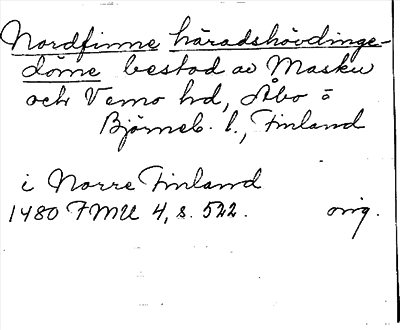 Nordfinne häradshövdinge-
döme bestod av Masku
och Vemo hd, Åbo o
Björneb. l., Finland
i Norre Finland
1480 FMU 4, s. 522. orig.